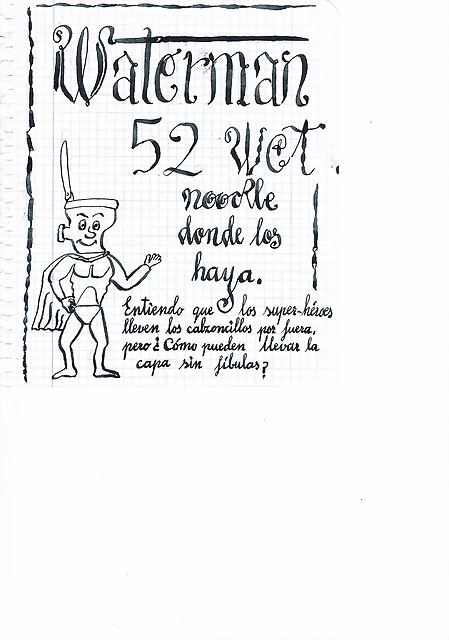 Waterman
52 Wet
noodle
donde los
haya.
Entiendo que los super-héroes
lleven los calzoncillos por fuera,
pero ¿Cómo pueden llevar la
capa sin fíbulas?